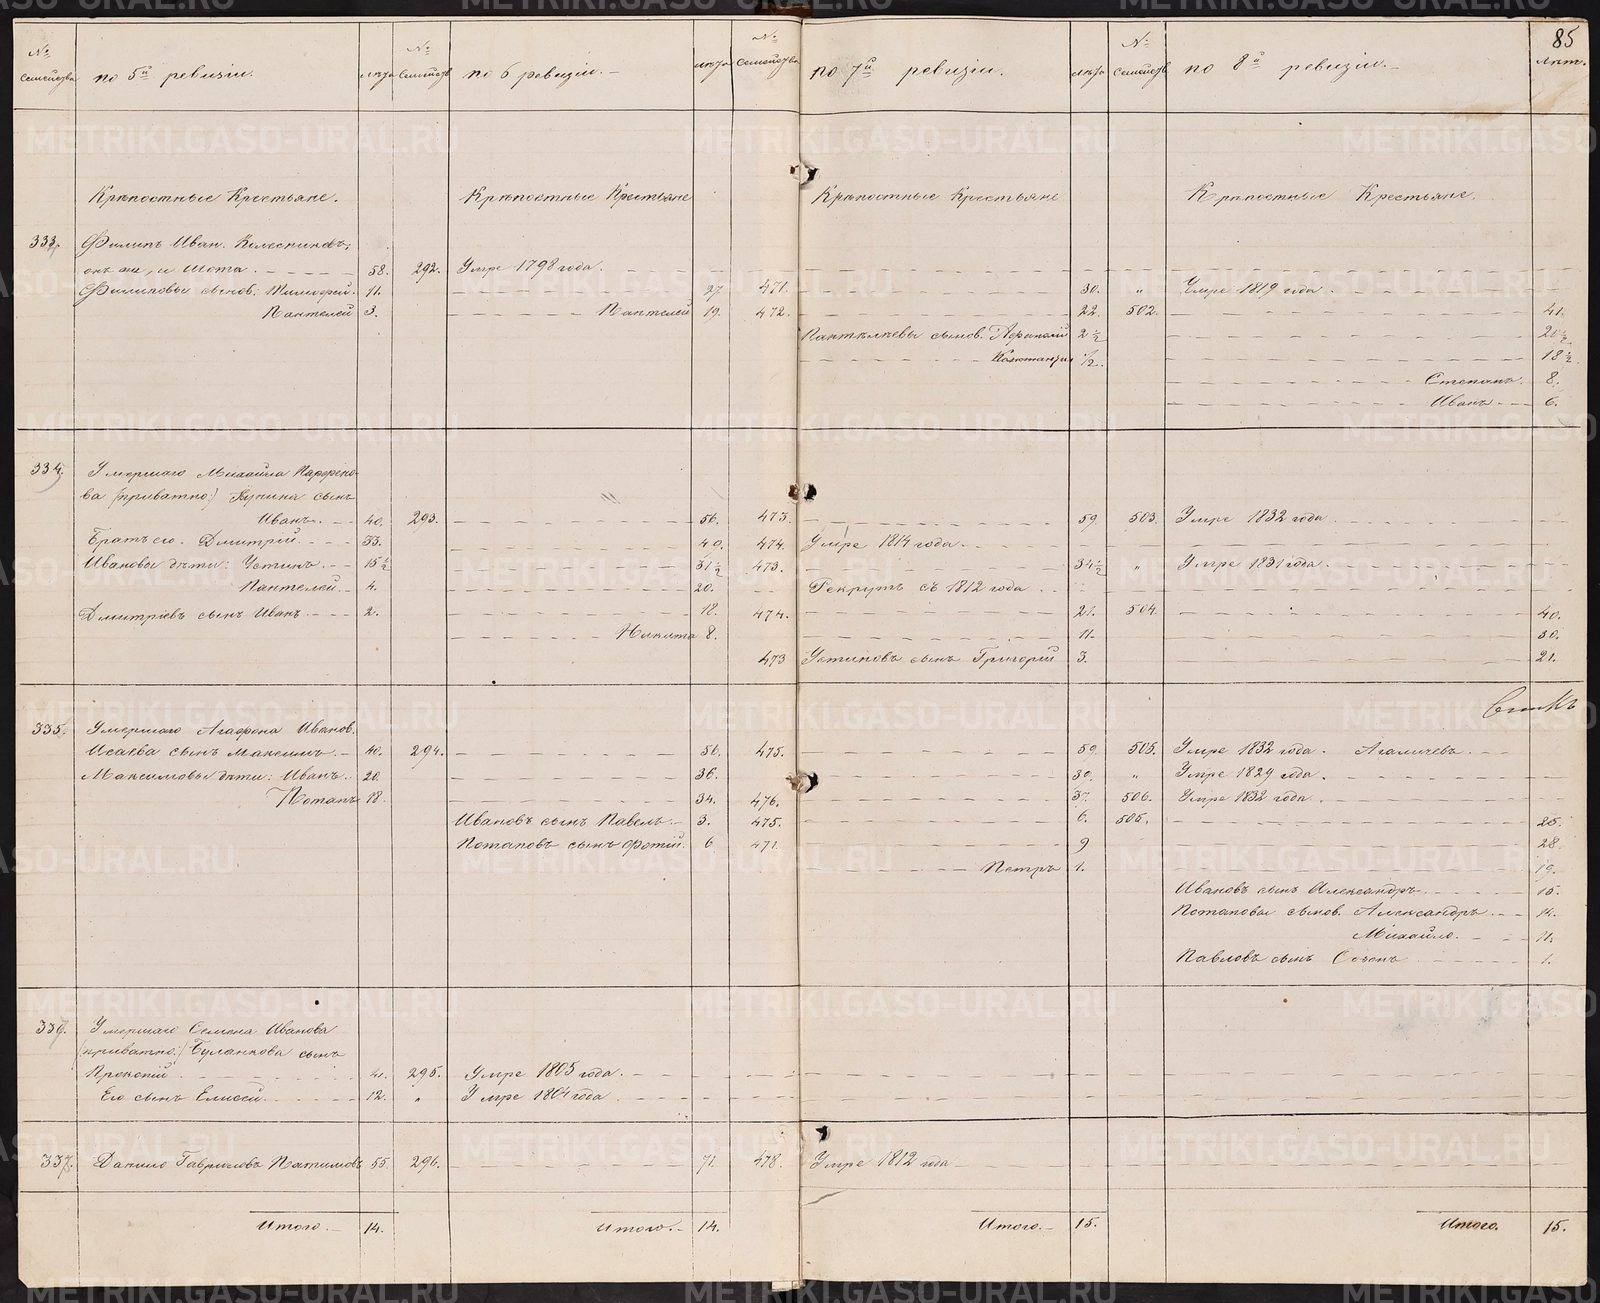 85
№ семейства по 5й ревизіи. лѣта № семейств по 6 ревизіи. лѣта № семейства по 7й ревизіи. лѣта № семейств по 8й ревизіи. лѣт.
Крѣпостные Крестьяне. Крѣпостные Крестьяне Крѣпостные Крестьяне Крѣпостные Крестьяне.
333. Филипъ Иван. Колесниковъ,
онъ же, и Шота. 58. 292. Умре 1798 года.
Филиповы сынов: Тимофей. 11. 27 471. 30. " Умре 1819 года.
Пантелей 3. Пантелей 19. 472. 22. 502. 41.
Пантѣлѣевы сынов. Афанасій 2½ 20½
½. 18½
Степанъ. 8.
Иванъ. 6.
334. Умершаго Михайла Парфено-
ва (приватно:) сынъ
Иванъ. 40. 293. 56. 473. 59. 503. Умре 1832 года.
Братъ его. Дмитрій. 33. 40. 474. Умре 1814 года.
Ивановы дѣти: Устинъ. 15½ 31½ 473. 34½ " Умре 1831 года.
Пантелей. 4. 20. Рекрутъ съ 1812 года
Дмитріевъ сынъ Иванъ. 2. 18. 474. 21. 504. 40.
Никита 8. 11. 30.
473 Устиновъ сынъ Григорій 3. 21.
335. Умершаго Агафона Иванов.
Исаева сынъ Максимъ. 40. 294. 56. 475. 59. 505. Умре 1832 года. Агаличевъ.
Максимовы дѣти: Иванъ. 20. 36. 39. " Умре 1829 года.
Потапъ 18. 34. 476. 37. 506. Умре 1832 года.
Ивановъ сынъ Павелъ. 3. 475. 6. 505. 25.
Потаповъ сынъ Фотій. 6 471. 9 28.
Петръ 1. 19.
Ивановъ сынъ Александръ. 15.
Потаповы сынов. Александръ. 14.
Михайло. 11.
Павловъ сынъ Осипъ 1.
336. Умершаго Семена Иванова
(приватно:) Буланкова сынъ
Прокопій 41. 295. Умре 1805 года.
Его сынъ Елисей. 12. " Умре 1804 года
337. Данило Гавриловъ Патимовъ 55. 296. 71. 478. Умре 1812 года
Итого. 14. Итого. 14. Итого. 15. Итого. 15.
METRIKI.GASO-URAL.RU